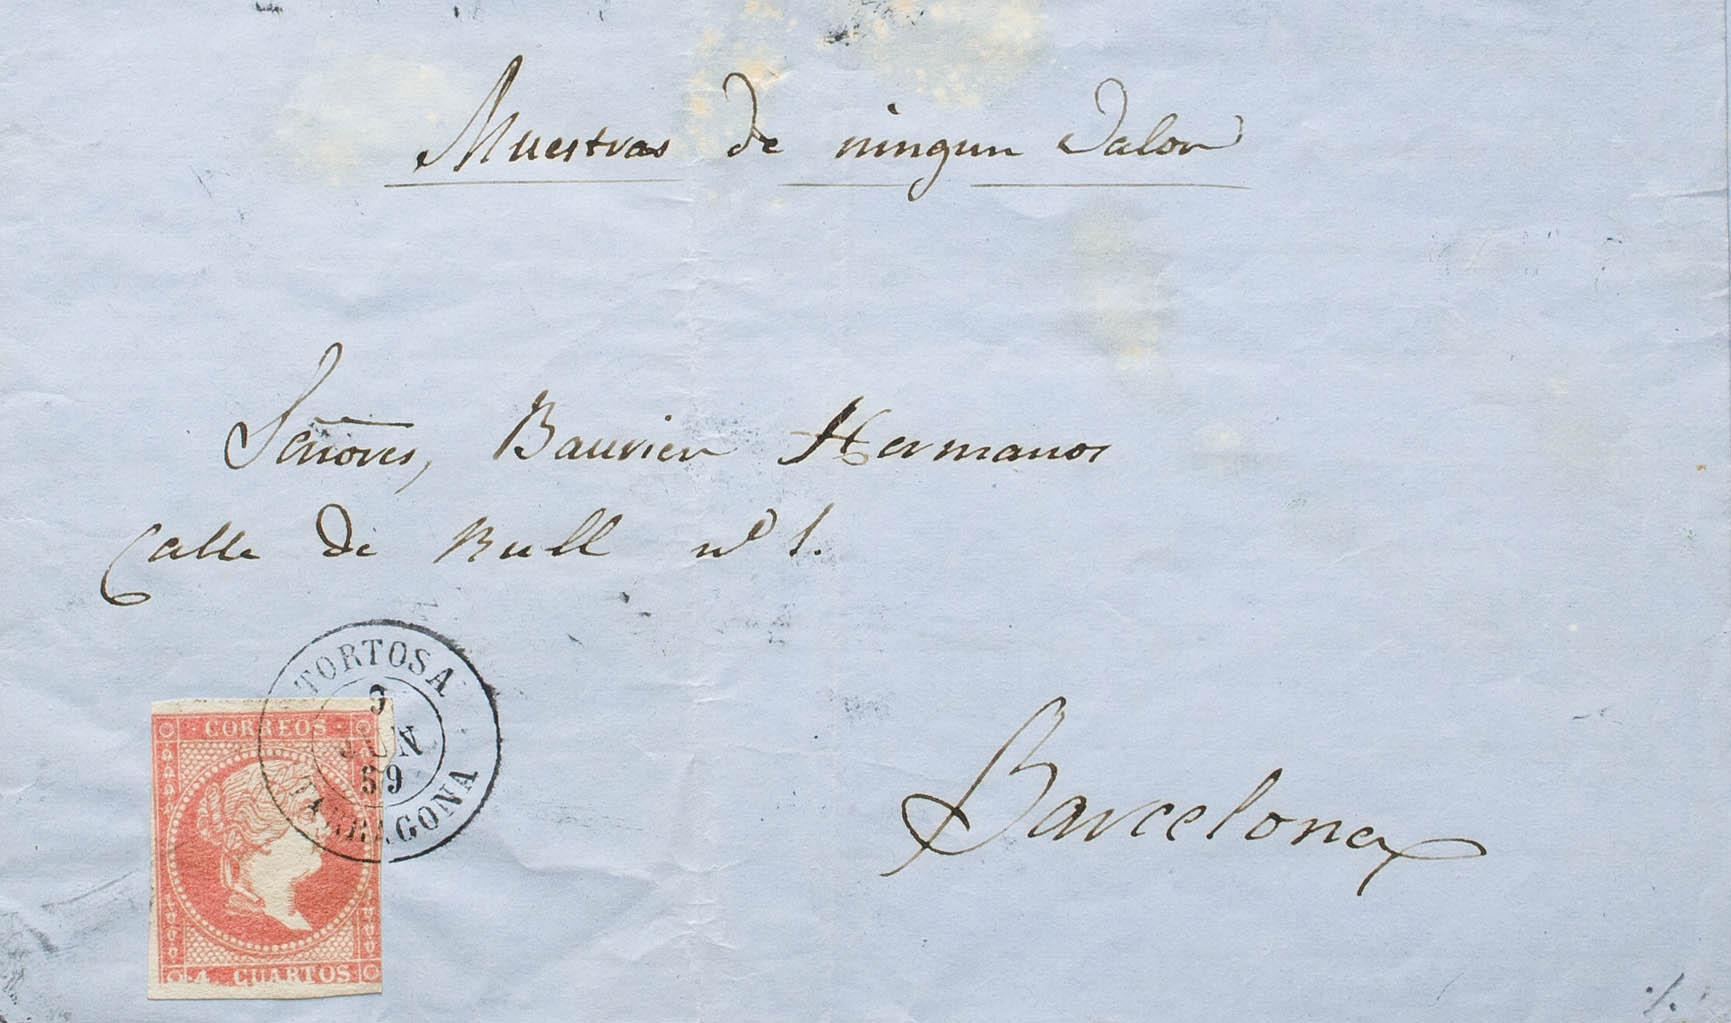 Muestras de ningun Valor
Señores, Baurier Hermanos
Calle de Rull nº 1.
TORTOSA
9
JUN
59
TARRAGONA
CORREOS
4 CUARTOS
Barcelona